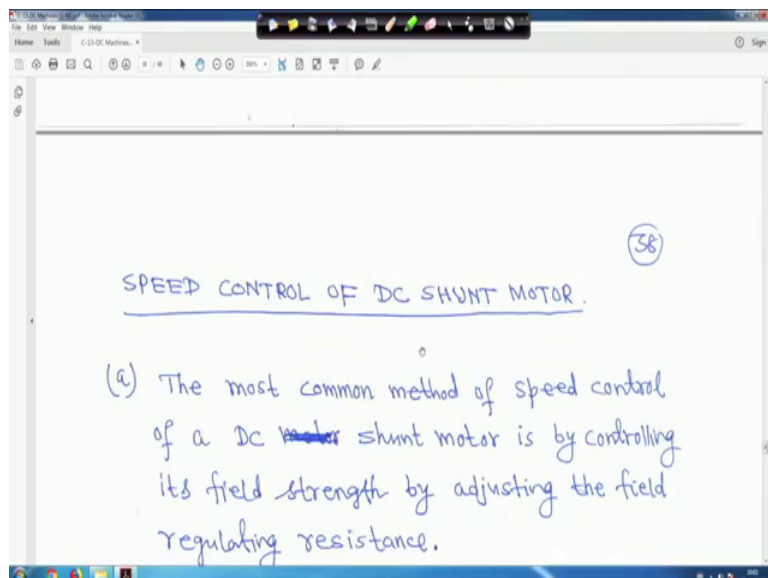 C-15-DC Machines (1-48).pdf - Adobe Acrobat Reader DC
File Edit View Window Help
Home Tools C-15-DC Machines... × Sign
38 / 48 200%
38
SPEED CONTROL OF DC SHUNT MOTOR.
(a) The most common method of speed control
of a DC shunt motor is by controlling
its field strength by adjusting the field
regulating resistance.